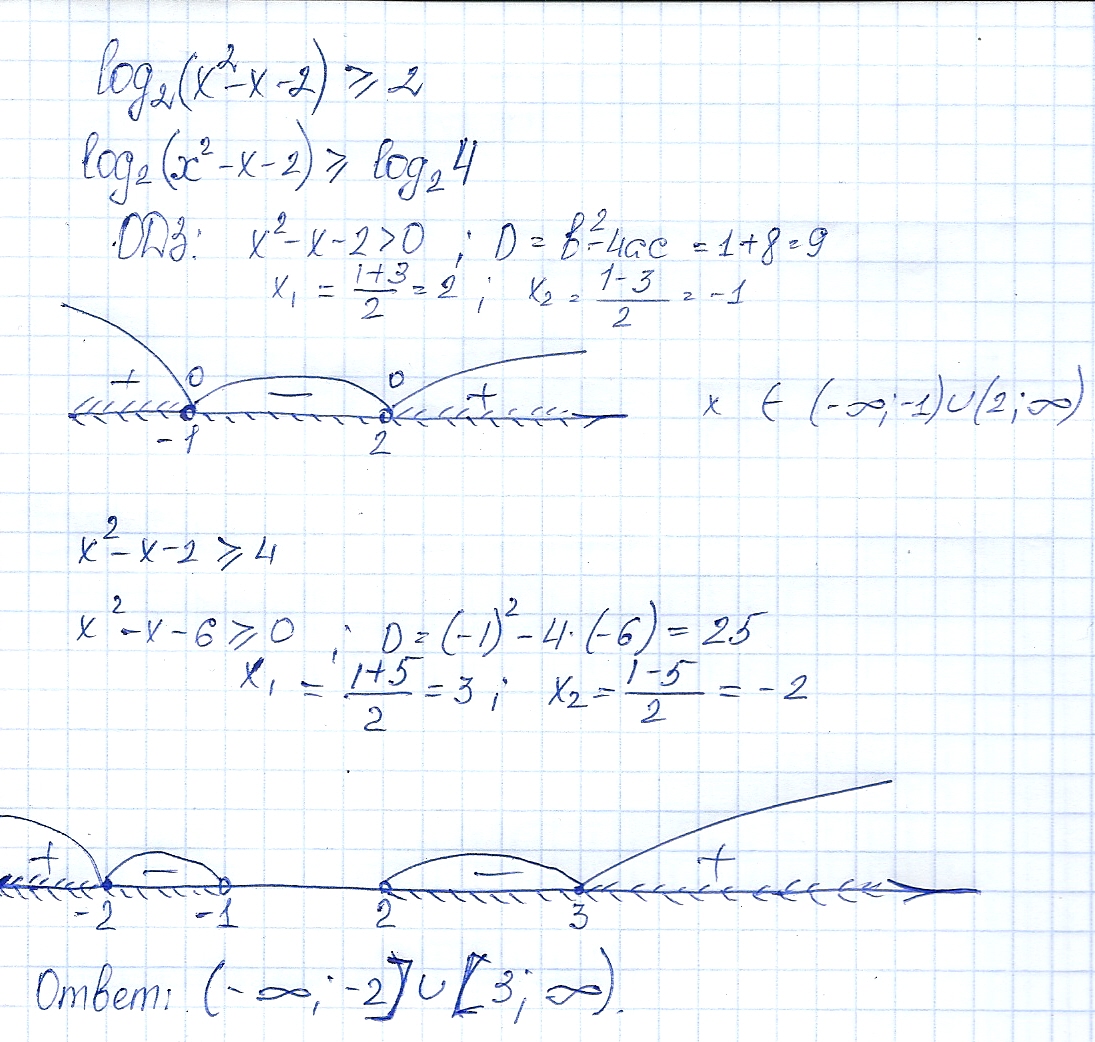 log₂(x²-x-2) ⩾ 2
log₂(x²-x-2) ⩾ log₂4
ОДЗ: x²-x-2>0 ; D = b²-4ac = 1+8=9
x₁ = (1+3)/2 = 2 ; x₂ = (1-3)/2 = -1
+ 0 − 0 +
-1 2
x ∈ (-∞;-1)∪(2;∞)
x²-x-2 ⩾ 4
x²-x-6 ⩾ 0 ; D = (-1)²-4·(-6) = 25
x₁ = (1+5)/2 = 3 ; x₂ = (1-5)/2 = -2
+ − − +
-2 -1 2 3
Ответ: (-∞;-2]∪[3;∞).